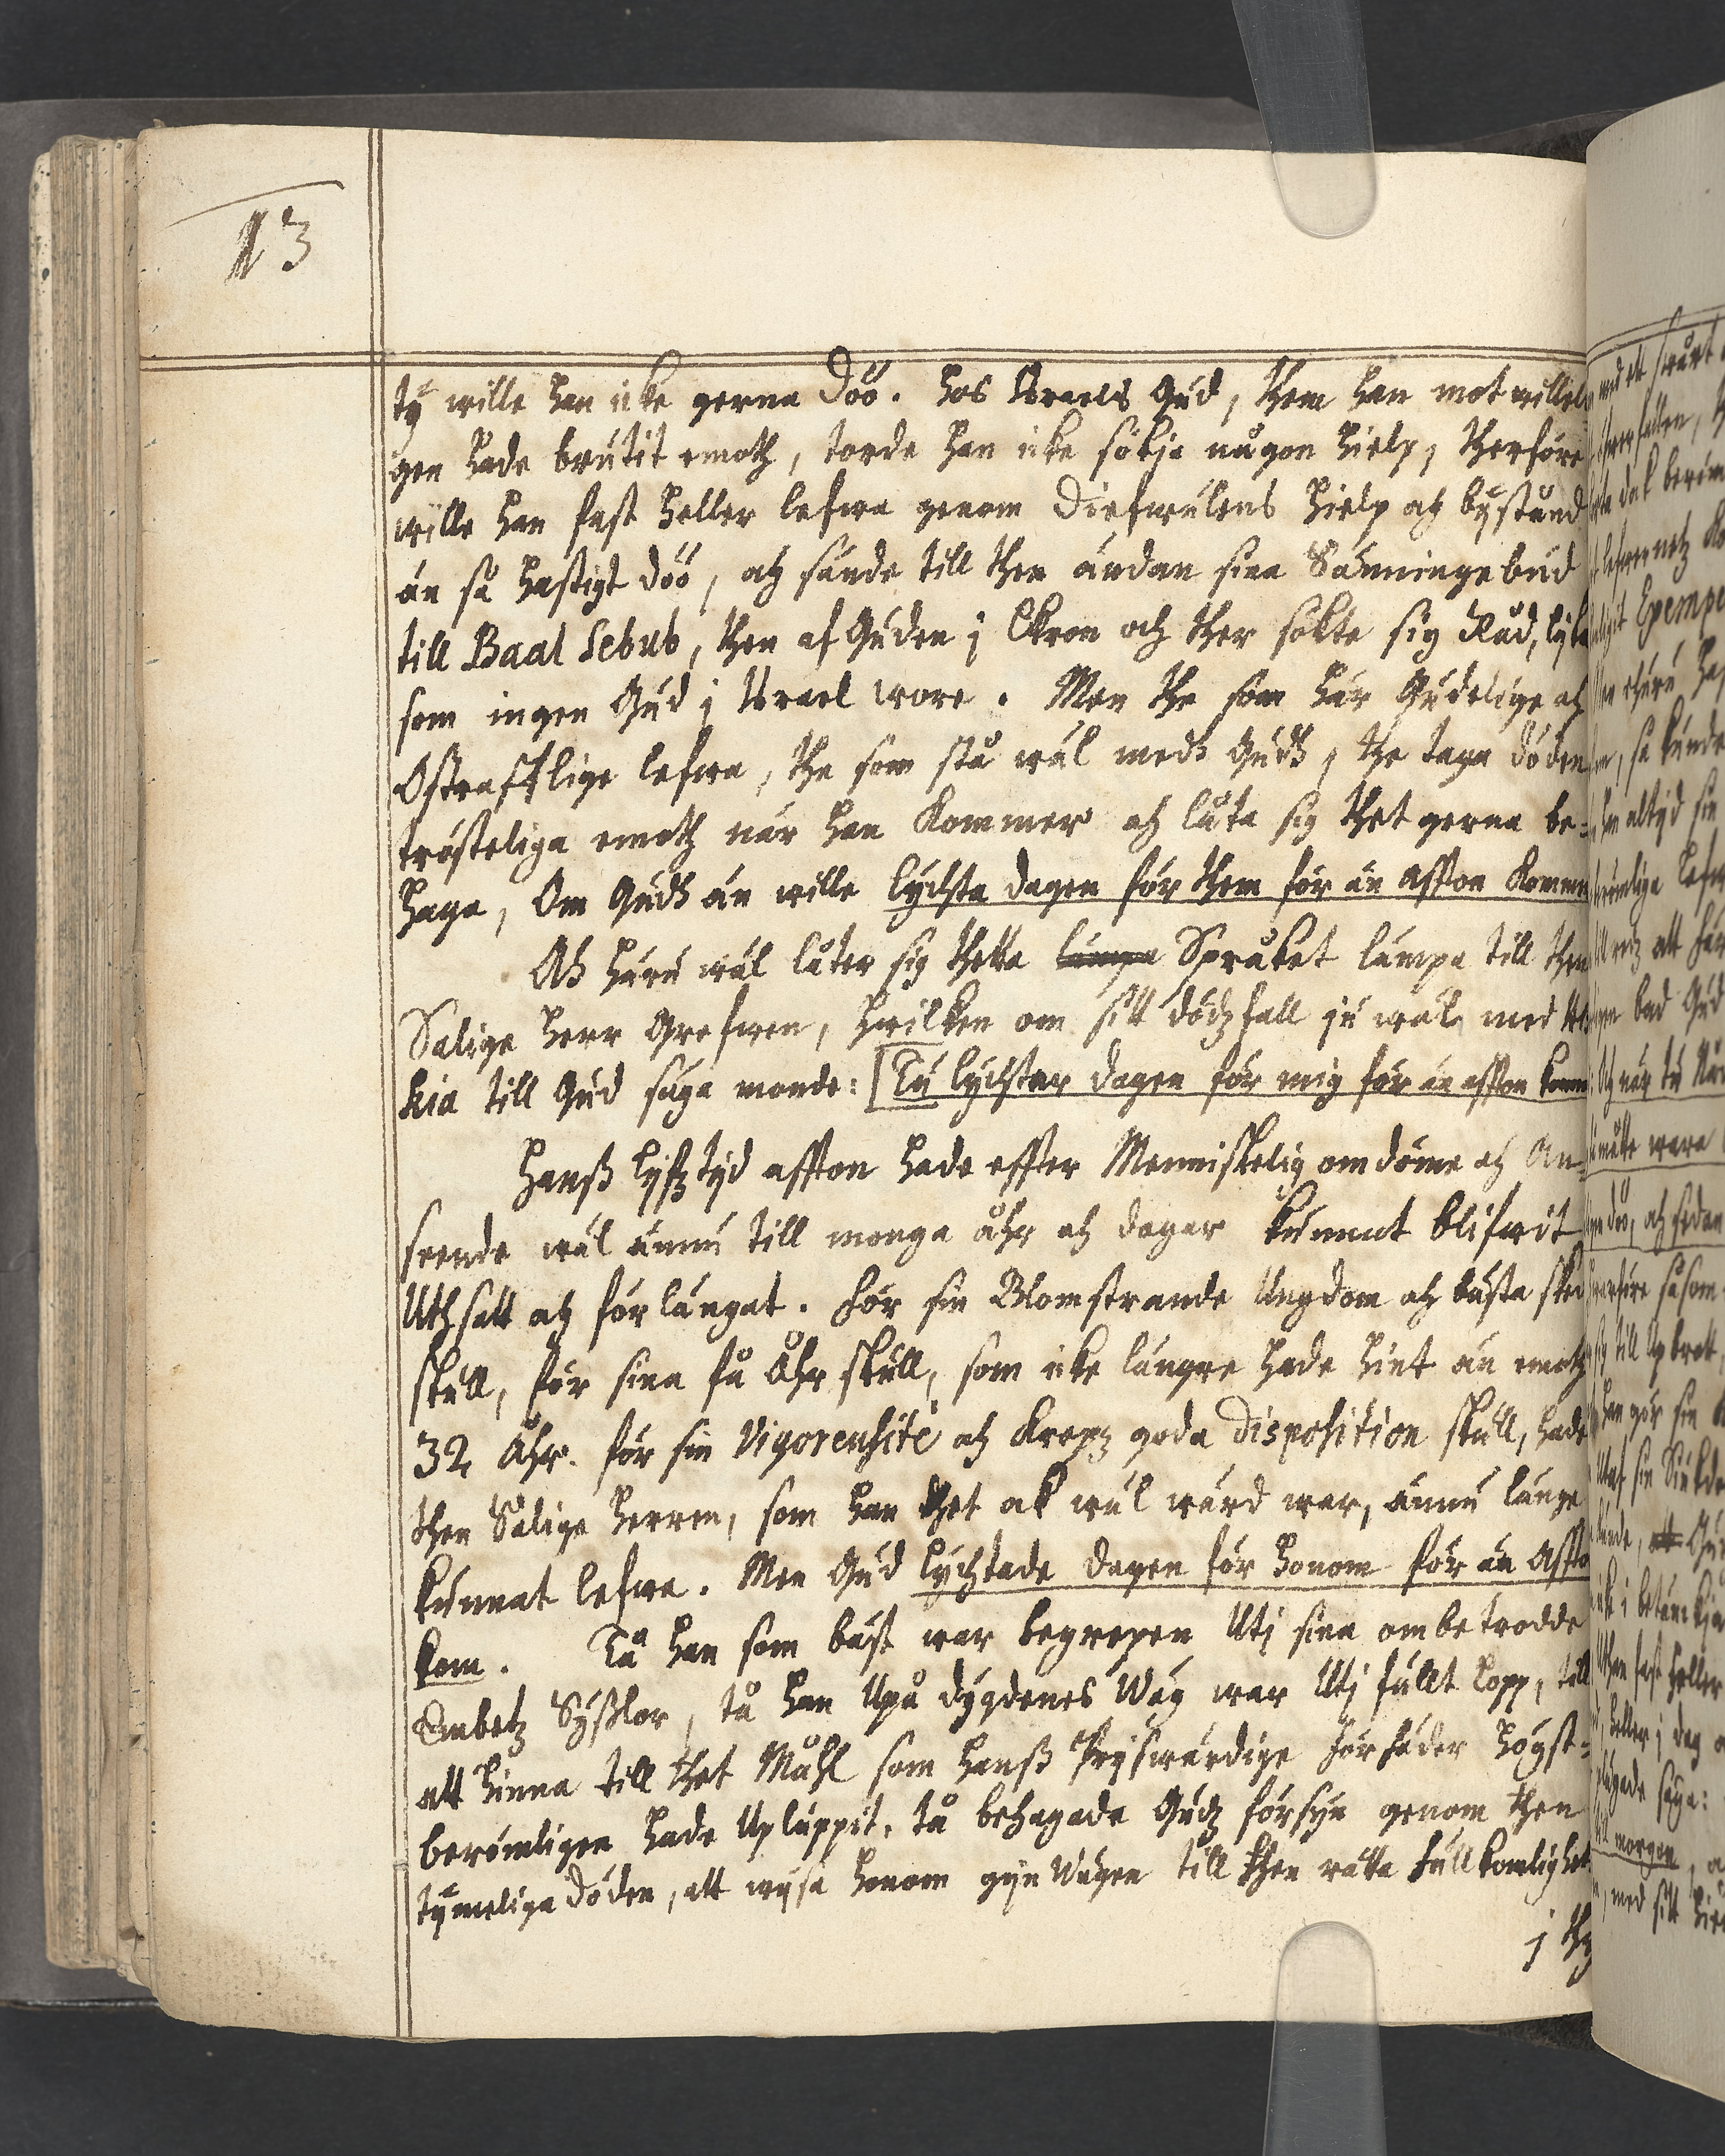 13
ty wille han icke gerna döö. Hos Israels Gud, them han motwilleli
gen hade brutit emoth, torde han icke sökja någon hielp, therföre
wille han fast heller lefwa genom Diefwulens hielp och bystånd
än så hastigt döö, och sände till then ändan sina Sänningebud
till Baal Sebub, then afGuden j Ekron och ther sökte sig Råd, lyka
som ingen Gud j Israel wore. Men the som här Gudelige och
Ostrafflige lefwa, the som stå wäl medh Gudh, the taga döden
trösteliga emoth när han Kommer och låta sig thet gerna be-
haga, Om Gudh än wille lychta dagen för them för än affton Kommer
Ah huru wäl låter sig thetta lämpa Språket lämpa till then
Salige Herr Grefwen, hwilken om sitt dödzfall ju wäl med
kia till Gud säga monde: Tu lychtar dagen för mig för än affton kom
Hanß lyfztyd affton hade effter Menniskelig omdöme och An-
seende wäl ännu till monga åhr och dagar kunnat blifwit
Uthsatt och förlängat. För sin Blomstrande Ungdom och bästa
skull, för sina få Åhr skull, som icke längre hade hint än emoth
32 Åhr. för sin Vigorensité och Kropz goda Disposition skull, hade
then Salige Herren, som han thet ok wäl wärd war, ännu länge
kunnat lefwa. Men Gud lychtade dagen för honom för än Affto
kom. Tå han som bäst war begrepen Utj sina ombetrodde
Embetz Syßlor, tå han Upå dygdenes Wäg war Utj fullt lopp, till
att hinna till thet Måhl som hanß Pryswärdige förfäder högst-
berömligen hade Uplupit, tå behagade Gudz försyn genom then
tymeliga döden, att wysa honom gijn Wägen till then rätta fullkomlighet
j thy